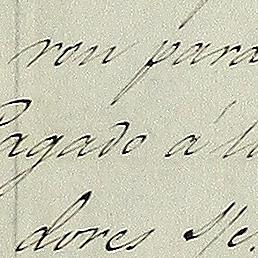 ron para
Pagado á l
dores